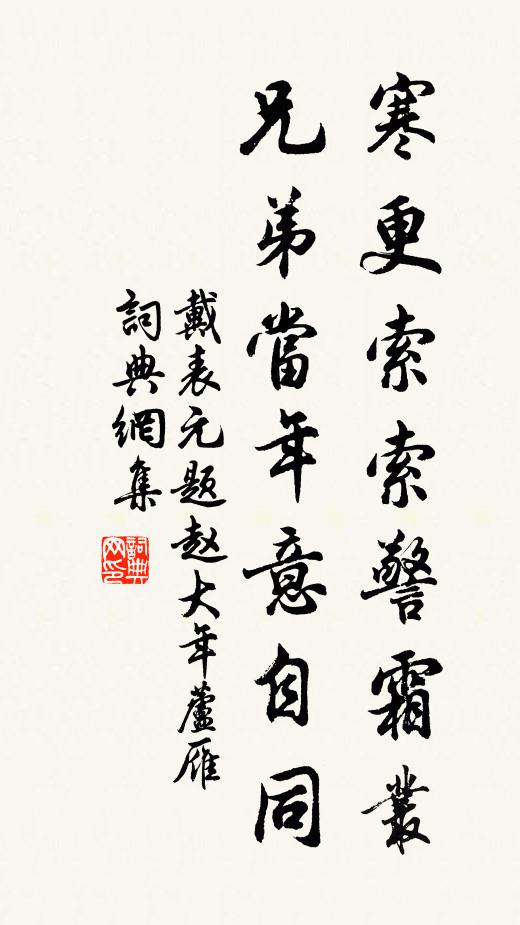 寒更索索警霜叢
兄弟當年意自同
戴表元題赵大年蘆雁
詞典網集
詞典网印